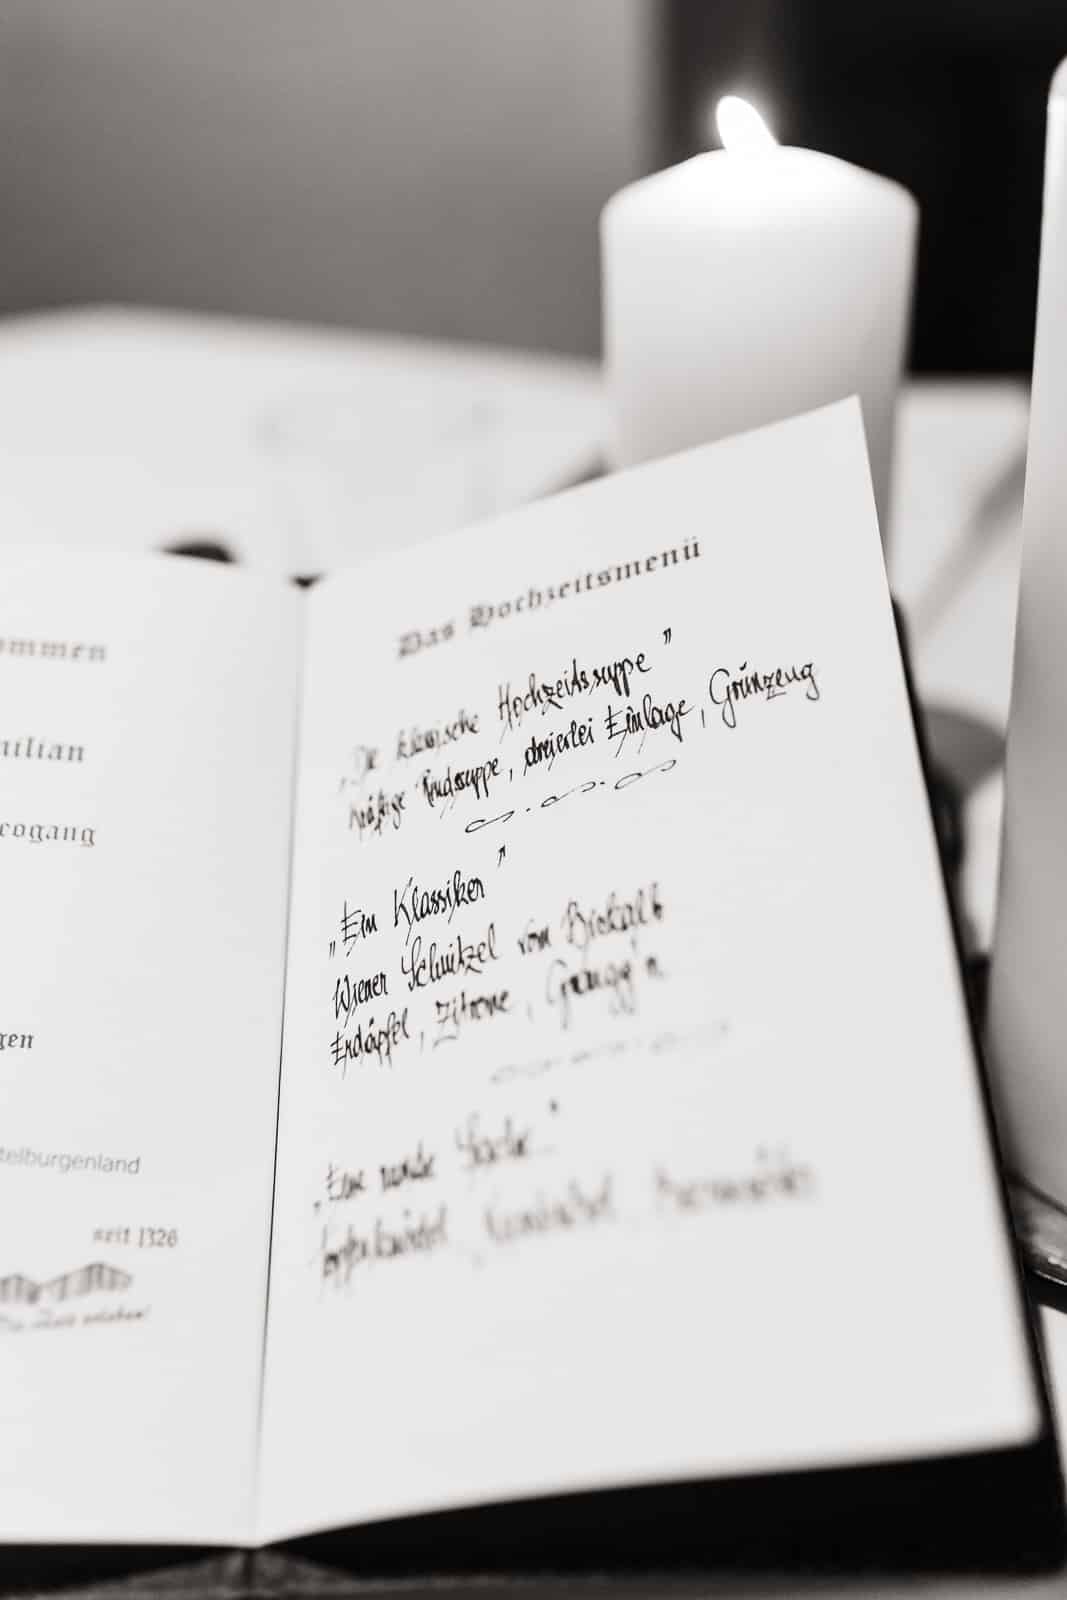 ommen
ilian
eogang
gen
telburgenland
seit 1326
Das Hochzeitsmenü
„Die klassische Hochzeitssuppe"
kräftige Rindssuppe, dreierlei Einlage, Grünzeug
„Ein Klassiker"
Wiener Schnitzel vom Biokalb
Erdäpfel, Zitrone, Grangg'n
„Eine runde Sache"